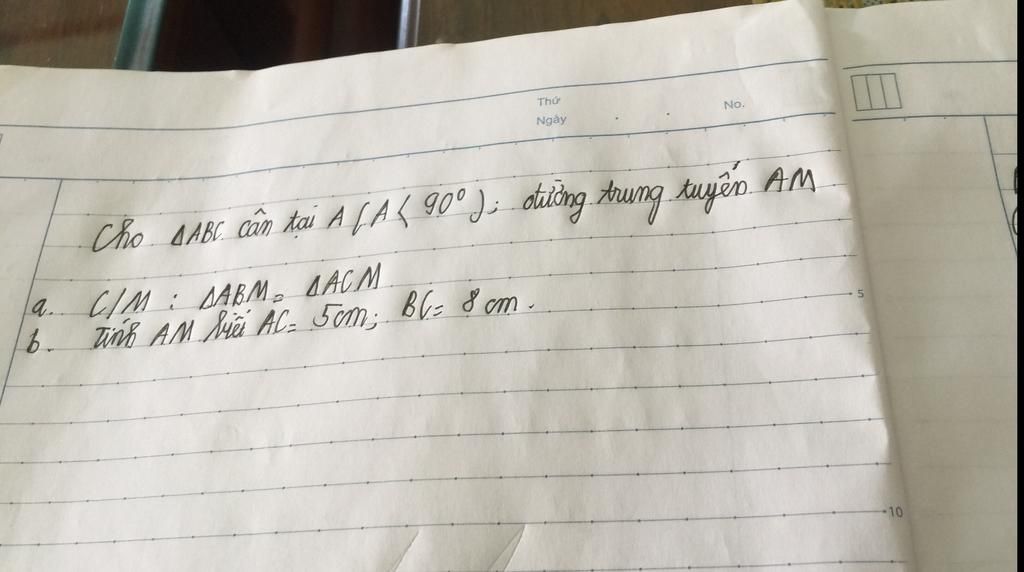 Thứ
Ngày
No.
Cho ΔABC cân tại A (A < 90°); đường trung tuyến AM
a. C/M : ΔABM = ΔACM
b. Tính AM biết AC = 5cm; BC = 8cm.
5
10